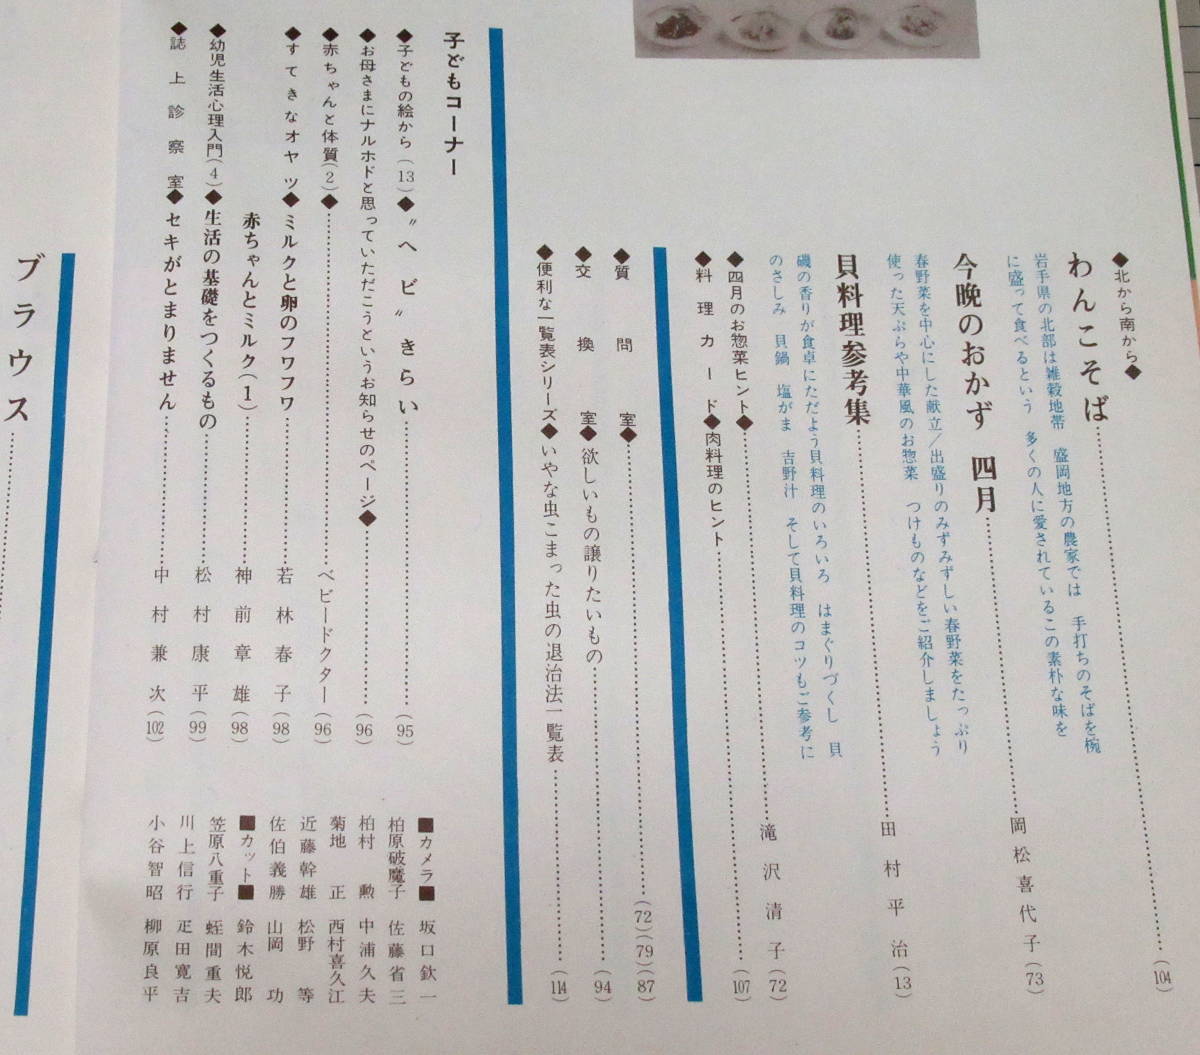 ◆北から南から◆
わんこそば……(104)
岩手県の北部は雑穀地帯　盛岡地方の農家では　手打ちのそばを椀
に盛って食べるという　多くの人に愛されているこの素朴な味を
今晩のおかず　四月……岡松喜代子(73)
春野菜を中心にした献立/出盛りのみずみずしい春野菜をたっぷり
使った天ぷらや中華風のお惣菜　つけものなどをご紹介しましょう
貝料理参考集……田村平治(13)
磯の香りが食卓にただよう貝料理のいろいろ　はまぐりづくし　貝
のさしみ　貝鍋　塩がま　吉野汁　そして貝料理のコツもご参考に
◆四月のお惣菜ヒント◆……滝沢清子(72)
◆料理カード◆肉料理のヒント……(107)
◆質問室◆……(72)(79)(87)
◆交換室◆欲しいもの譲りたいもの……(94)
◆便利な一覧表シリーズ◆いやな虫こまった虫の退治法一覧表……(114)
子どもコーナー
◆子どもの絵から(13)◆〝ヘビ〟きらい……(95)
◆お母さまにナルホドと思っていただこうというお知らせのページ◆……(96)
◆赤ちゃんと体質(2)◆……ベビードクター(96)
◆すてきなオヤツ◆ミルクと卵のフワフワ……若林春子(98)
赤ちゃんとミルク(1)……神前章雄(98)
◆幼児生活心理入門(4)◆生活の基礎をつくるもの……松村康平(99)
◆誌上診察室◆セキがとまりません……中村兼次(102)
■カメラ■　坂口欽一
柏原破魔子　佐藤省三
柏村　勲　中浦久夫
菊地　正　西村喜久江
近藤幹雄　松野　等
佐伯義勝　山岡　功
■カット■　鈴木悦郎
笠原八重子　蛭間重夫
川上信行　疋田寛吉
小谷智昭　柳原良平
ブラウス……